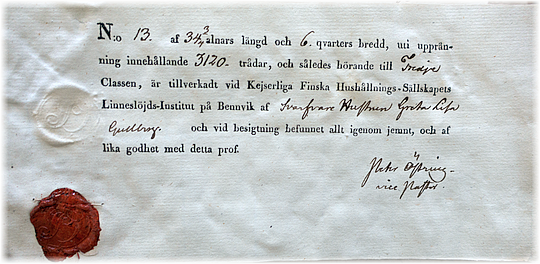 N:o 13. af 34,3 alnars längd och 6. qvarters bredd, uti upprän-
ning innehållande 3120. trådar, och således hörande till Tredje
Classen, är tillverkadt vid Kejserliga Finska Hushållnings-Sällskapets
Linneslöjds-Institut på Bennvik af Svarfvare Hustrun Greta Lisa
och vid besigtning befunnet allt igenom jemnt, och af
lika godhet med detta prof.
Peter Östring.
vice Pastor.